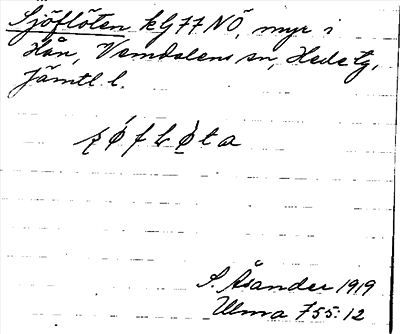 Sjöflöten kG77NÖ, myr i
Hån, Vemdalens sn, Hede tg,
Jämtl l.
S. Åsander 1919
Ulma 755:12